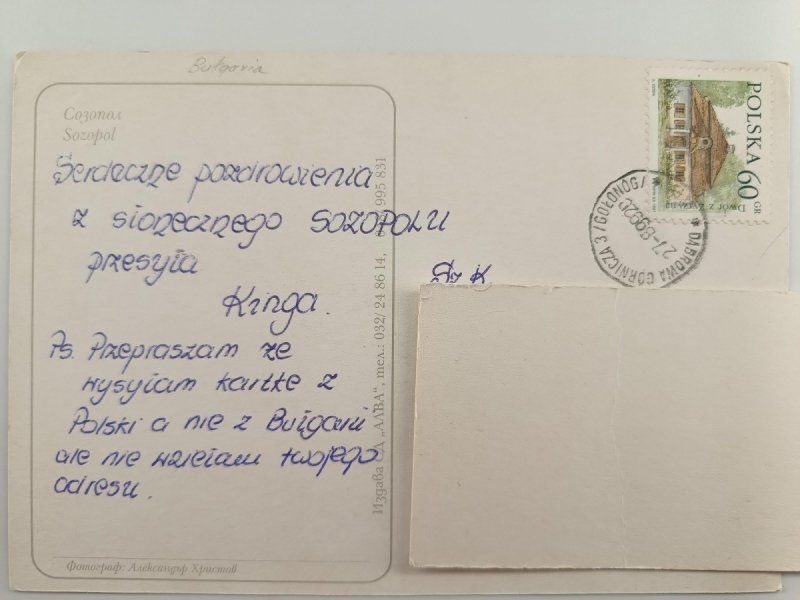 Bułgaria
Созопол
Sozopol
Serdeczne pozdrowienia
z słonecznego SOZOPOLU
przesyła
Kinga.
Ps. Przepraszam że
wysyłam kartkę z
Polski a nie z Bułgarii
ale nie wzięłam twojego
adresu.
Фотограф: Александър Христов
Издава СД „АЛВА“, тел.: 032/ 24 86 14, 995 831
POLSKA 60 GR
DWÓR Z
* DĄBROWA GÓRNICZA 3 /GOŁONÓG/ *